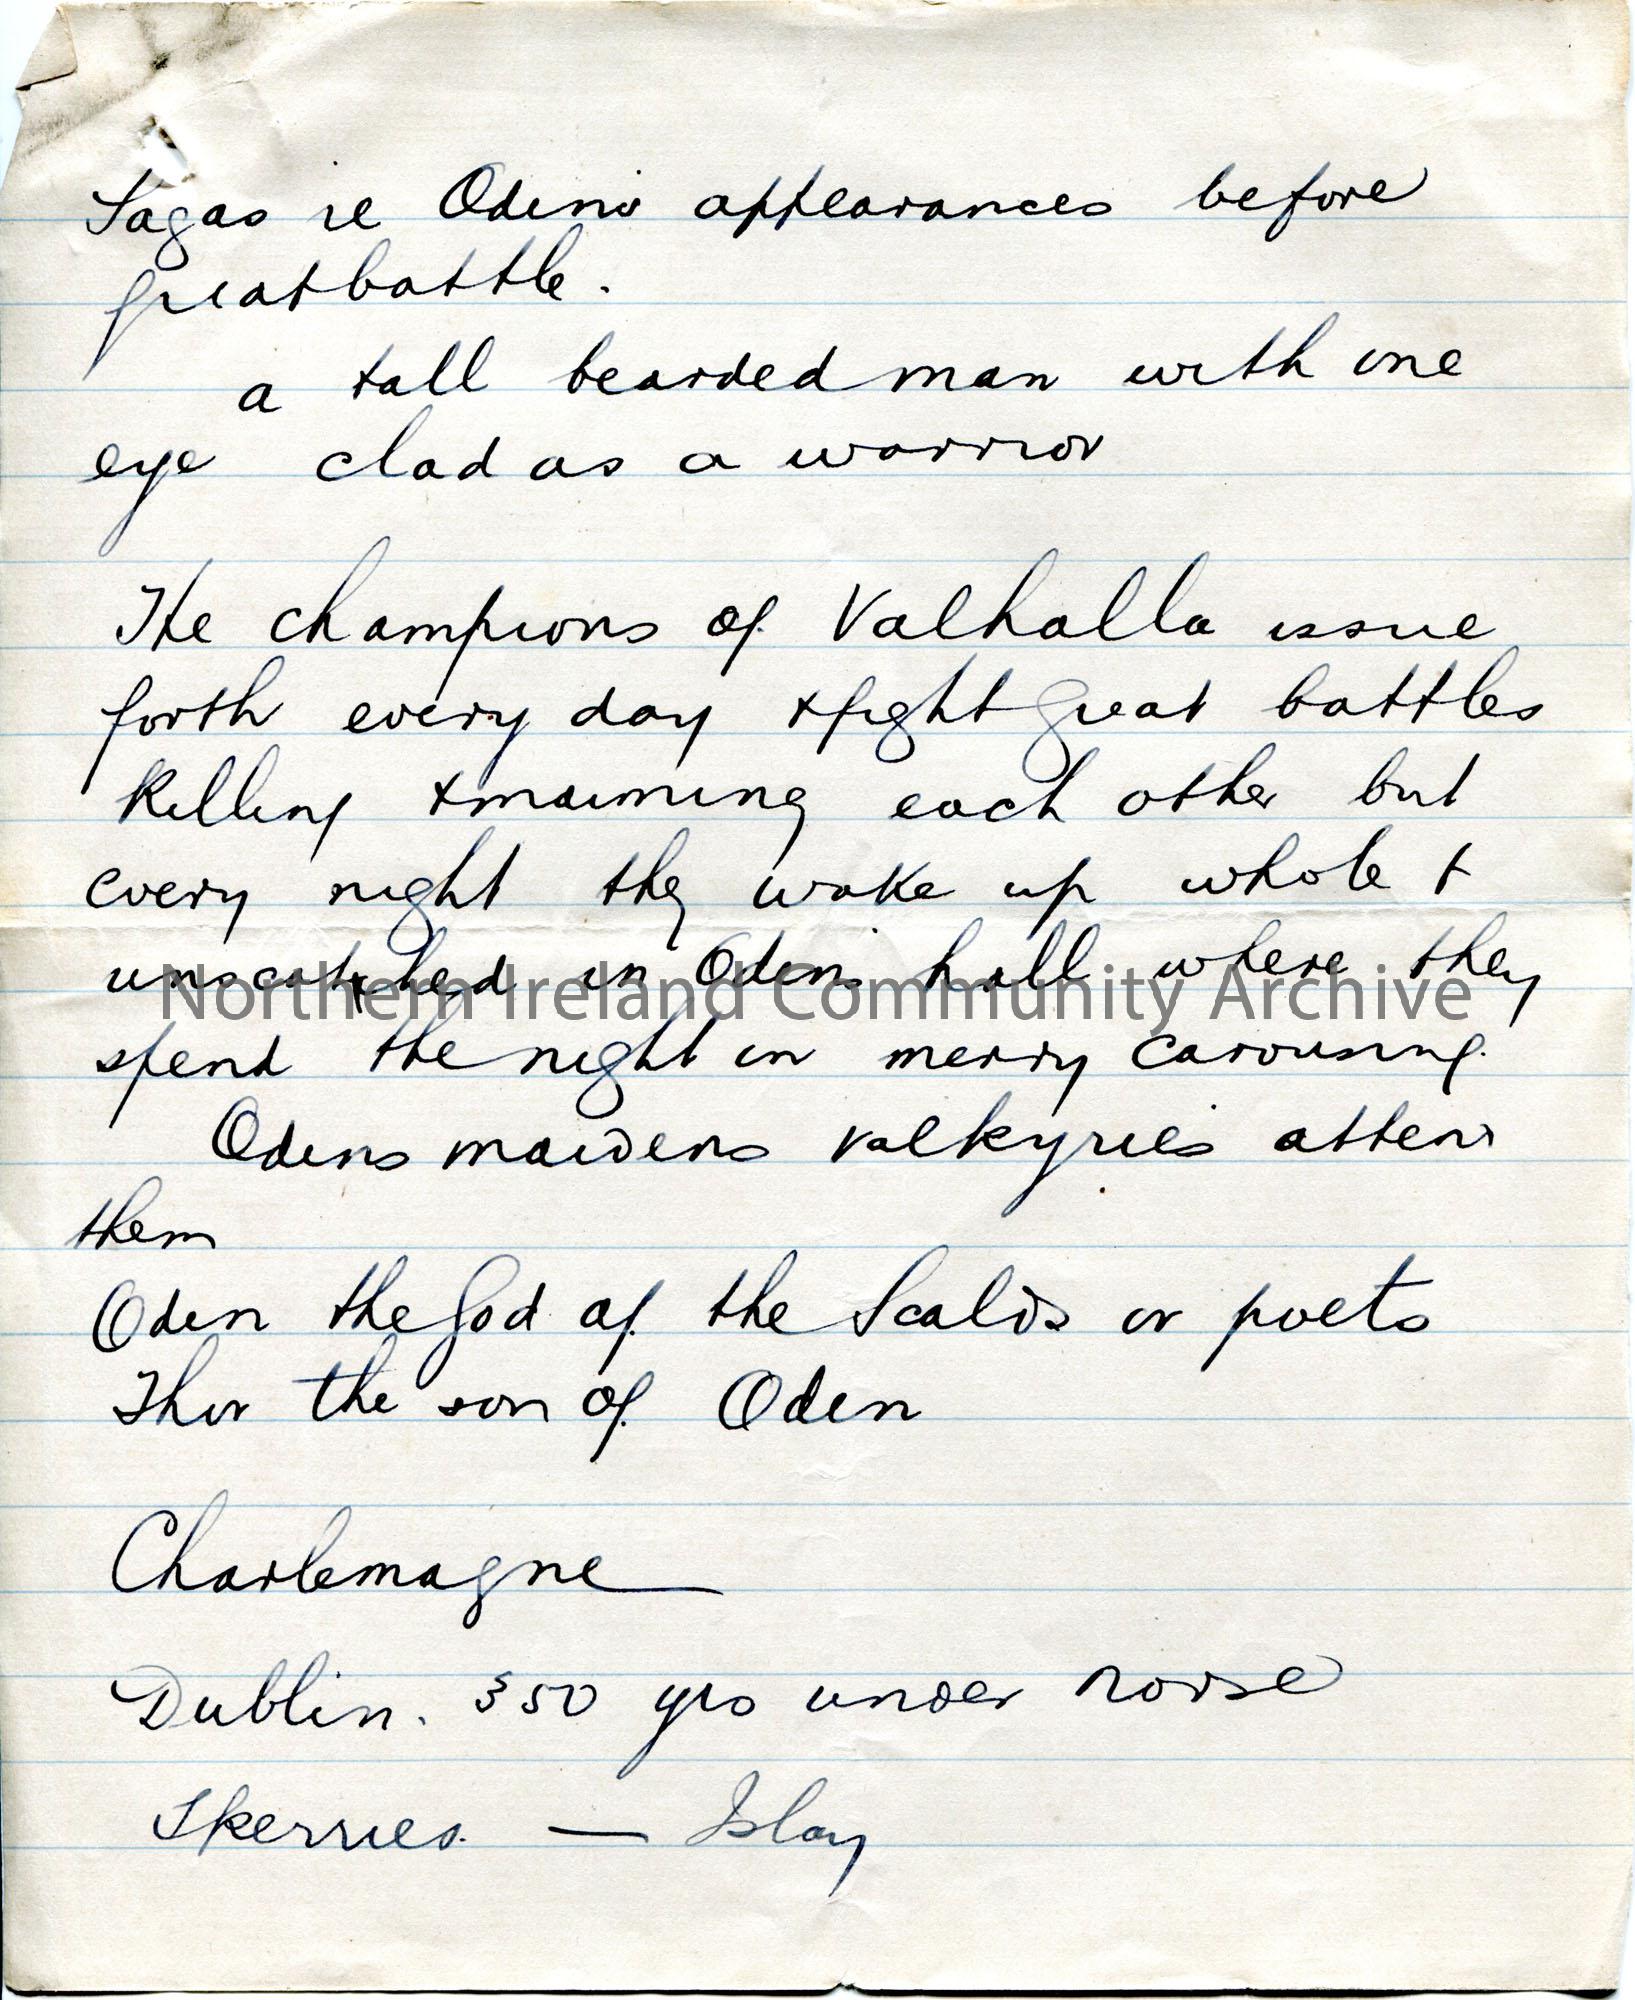 Sagas re Odens appearances before
great battle.
a tall bearded man with one
eye clad as a warrior
The champions of Valhalla issue
forth every day + fight great battles
killing + maiming each other but
every night they wake up whole +
unscathed in Odens hall where they
Northern Ireland Community Archive
spend the night in merry carousing.
Odens maidens valkyries attend
them
Oden the God of the Scalds or poets
Thor the son of Oden
Charlemagne
Dublin. 350 yrs under norse
Skerries. — Islay